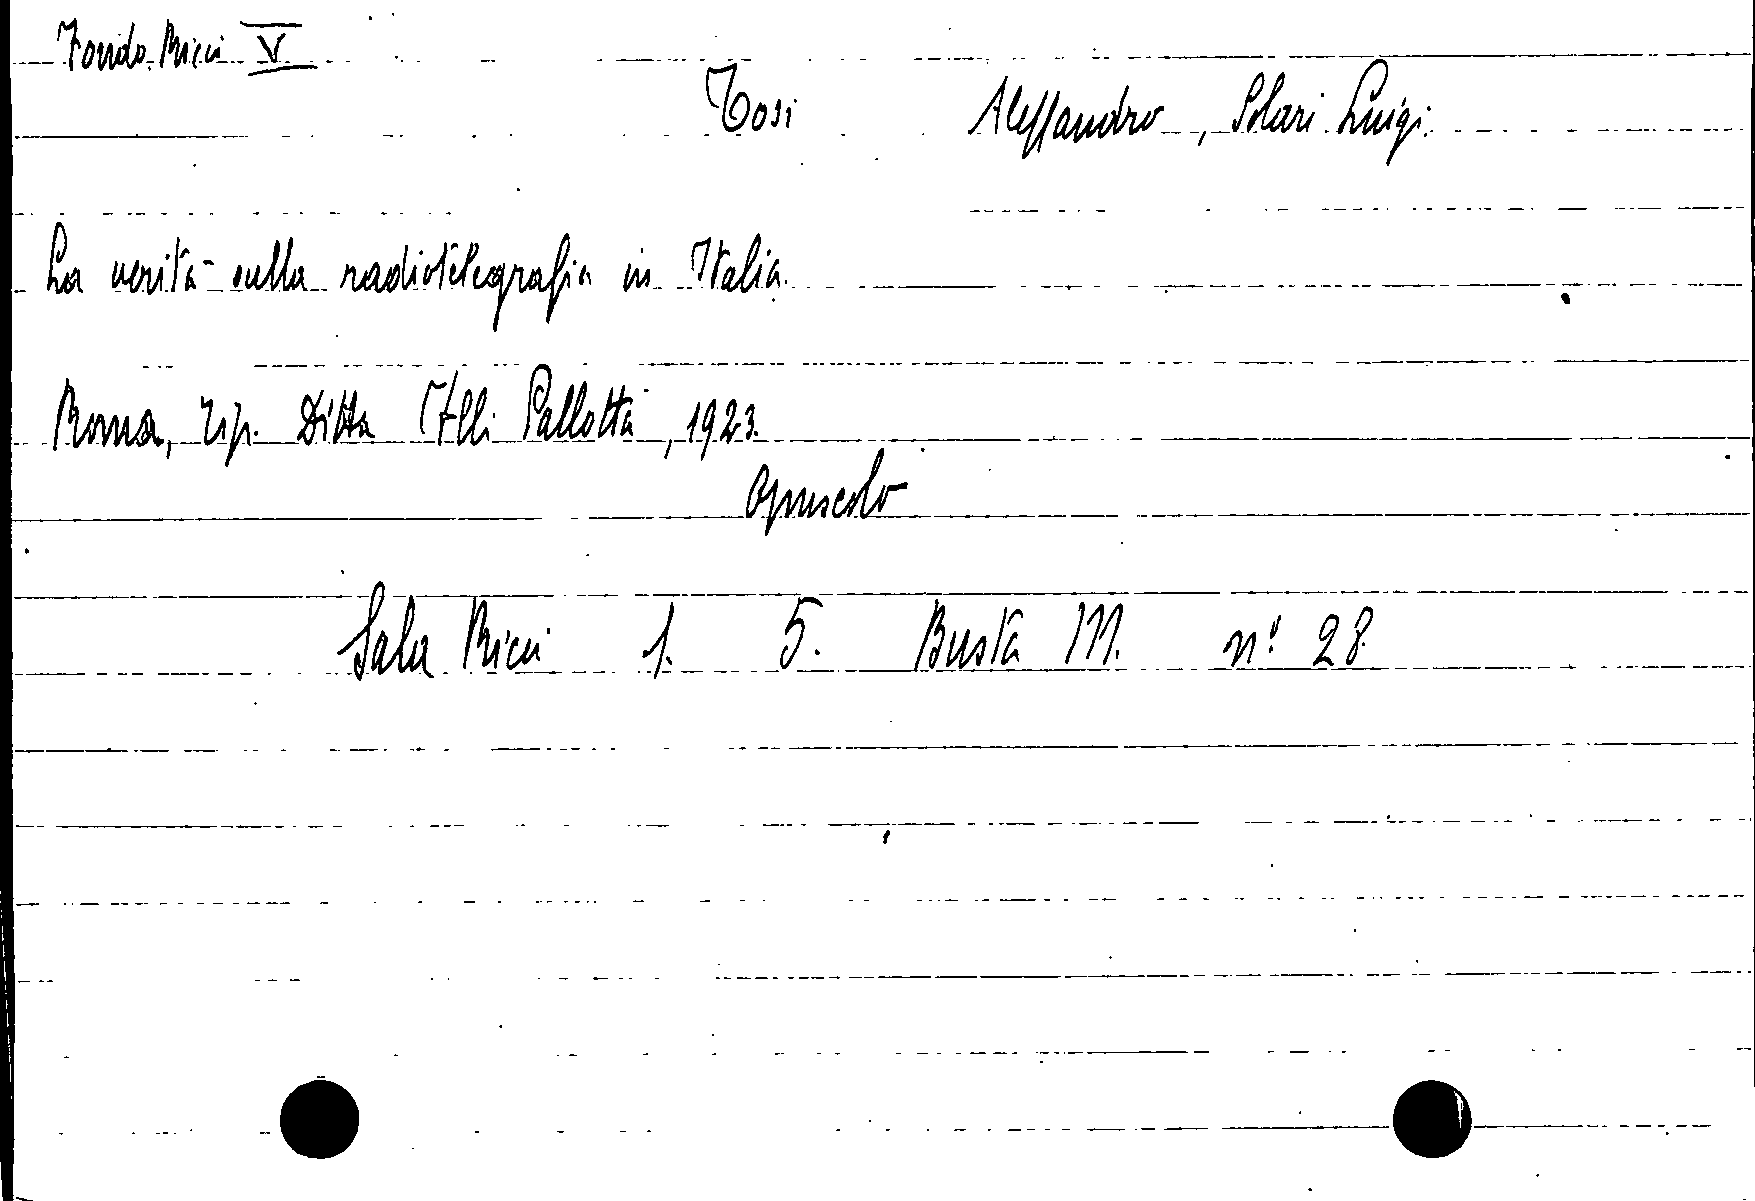 Fondo Ricci V
Tosi Alessandro, Solari Luigi.
La verità sulla radiotelegrafia in Italia.
Roma, Tip. Ditta F.lli Pallotta, 1923.
Opuscolo
Sala Ricci 1. 5. Busta M. n° 28.